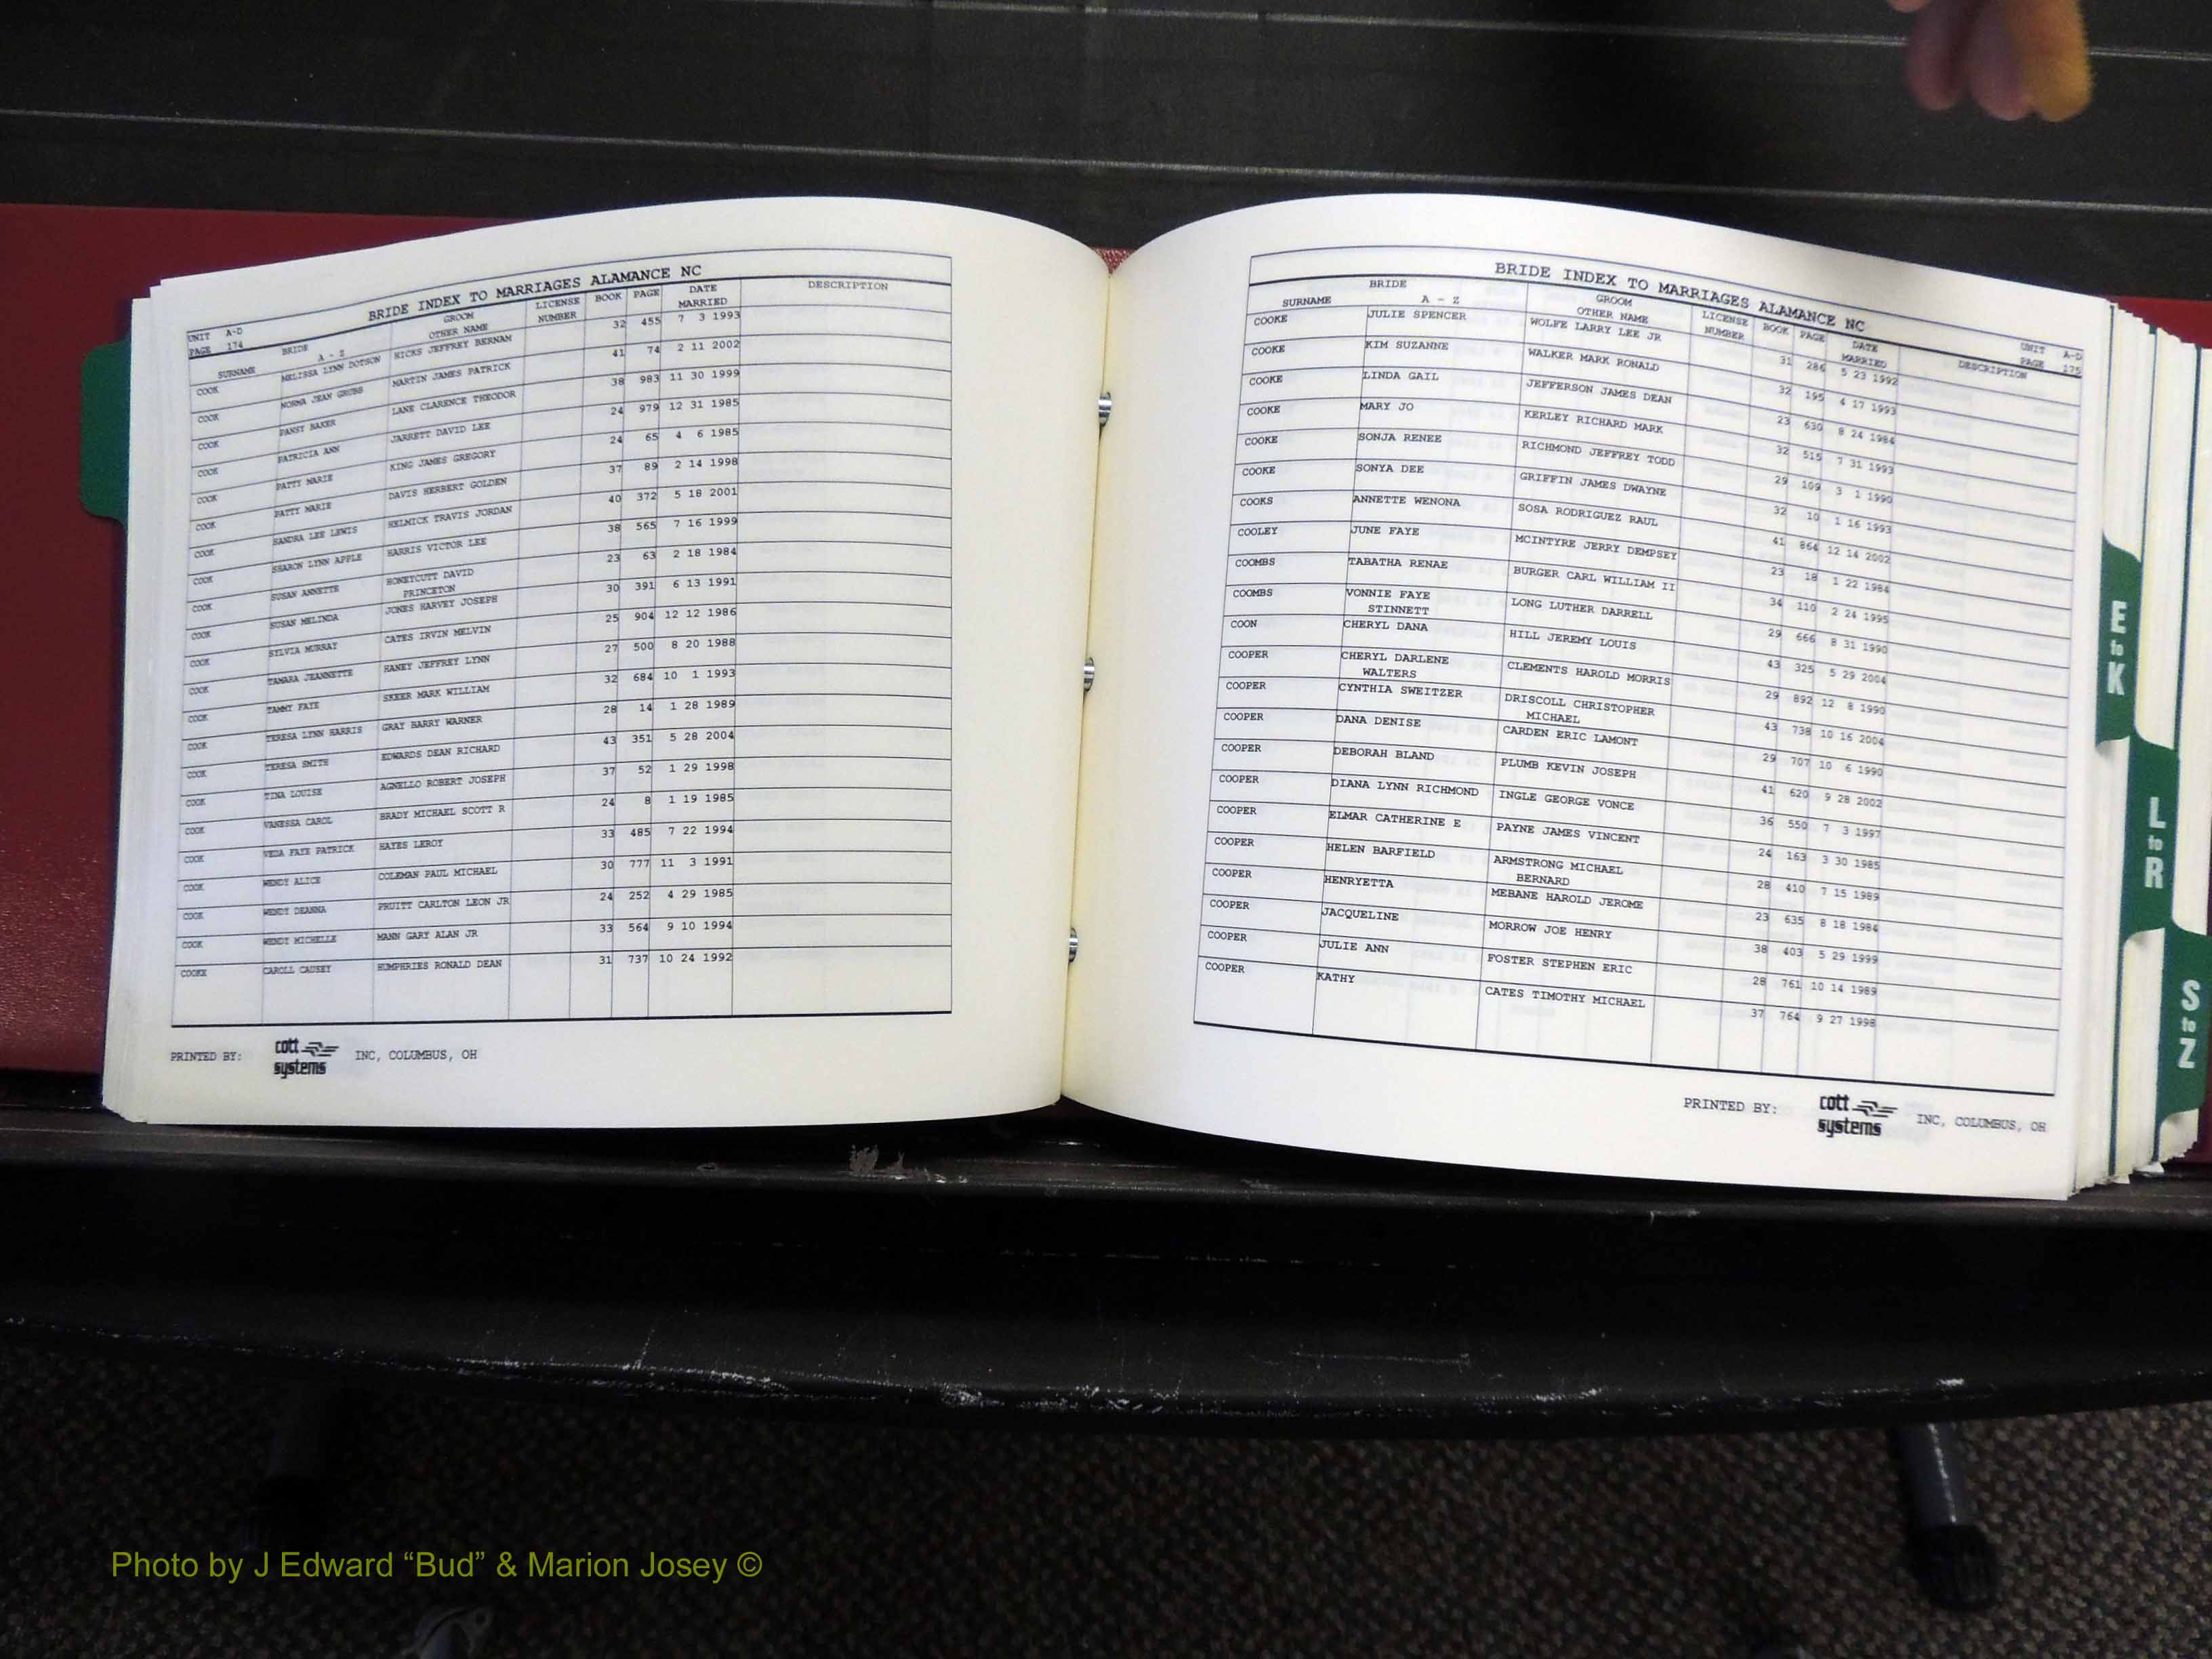 UNIT A-D
PAGE 174
BRIDE INDEX TO MARRIAGES ALAMANCE NC
SURNAME BRIDE A - Z GROOM OTHER NAME LICENSE NUMBER BOOK PAGE DATE MARRIED DESCRIPTION
COOK MELISSA LYNN DOTSON HICKS JEFFREY BERNAM 32 455 7 3 1993
COOK NORMA JEAN GRUBB MARTIN JAMES PATRICK 41 74 2 11 2002
COOK PANSY BAKER LANE CLARENCE THEODOR 38 983 11 30 1999
COOK PATRICIA ANN JARRETT DAVID LEE 24 979 12 31 1985
COOK PATTY MARIE KING JAMES GREGORY 24 65 4 6 1985
COOK PATTY MARIE DAVIS HERBERT GOLDEN 37 89 2 14 1998
COOK SANDRA LEE LEWIS HELMICK TRAVIS JORDAN 40 372 5 18 2001
COOK SHARON LYNN APPLE HARRIS VICTOR LEE 38 565 7 16 1999
COOK SUSAN ANNETTE HONEYCUTT DAVID 23 63 2 18 1984
PRINCETON
COOK SUSAN MELINDA JONES HARVEY JOSEPH 30 391 6 13 1991
COOK SYLVIA MURRAY CATES IRVIN MELVIN 25 904 12 12 1986
COOK TAMARA JEANNETTE HANEY JEFFREY LYNN 27 500 8 20 1988
COOK TAMMY FAYE SKEER MARK WILLIAM 32 684 10 1 1993
COOK TERESA LYNN HARRIS GRAY BARRY WARNER 28 14 1 28 1989
COOK TERESA SMITH EDWARDS DEAN RICHARD 43 351 5 28 2004
COOK TINA LOUISE AGNELLO ROBERT JOSEPH 37 52 1 29 1998
COOK VANESSA CAROL BRADY MICHAEL SCOTT R 24 8 1 19 1985
COOK VEDA FAYE PATRICK HAYES LEROY 33 485 7 22 1994
COOK WENDY ALICE COLEMAN PAUL MICHAEL 30 777 11 3 1991
COOK WENDY DEANNA PRUITT CARLTON LEON JR 24 252 4 29 1985
COOK WENDY MICHELLE MANN GARY ALAN JR 33 564 9 10 1994
COOKE CAROLL CAUSEY HUMPHRIES RONALD DEAN 31 737 10 24 1992
PRINTED BY: cott systems INC, COLUMBUS, OH
BRIDE INDEX TO MARRIAGES ALAMANCE NC
UNIT A-D
PAGE 175
SURNAME BRIDE A - Z GROOM OTHER NAME LICENSE NUMBER BOOK PAGE DATE MARRIED DESCRIPTION
COOKE JULIE SPENCER WOLFE LARRY LEE JR 31 286 5 23 1992
COOKE KIM SUZANNE WALKER MARK RONALD 32 195 4 17 1993
COOKE LINDA GAIL JEFFERSON JAMES DEAN 23 630 8 24 1984
COOKE MARY JO KERLEY RICHARD MARK 32 515 7 31 1993
COOKE SONJA RENEE RICHMOND JEFFREY TODD 29 109 3 1 1990
COOKE SONYA DEE GRIFFIN JAMES DWAYNE 32 10 1 16 1993
COOKS ANNETTE WENONA SOSA RODRIGUEZ RAUL 41 864 12 14 2002
COOLEY JUNE FAYE MCINTYRE JERRY DEMPSEY 23 18 1 22 1984
COOMBS TABATHA RENAE BURGER CARL WILLIAM II 34 110 2 24 1995
COOMBS VONNIE FAYE LONG LUTHER DARRELL 29 666 8 31 1990
STINNETT
COON CHERYL DANA HILL JEREMY LOUIS 43 325 5 29 2004
COOPER CHERYL DARLENE CLEMENTS HAROLD MORRIS 29 892 12 8 1990
WALTERS
COOPER CYNTHIA SWEITZER DRISCOLL CHRISTOPHER 43 738 10 16 2004
MICHAEL
COOPER DANA DENISE CARDEN ERIC LAMONT 29 707 10 6 1990
COOPER DEBORAH BLAND PLUMB KEVIN JOSEPH 41 620 9 28 2002
COOPER DIANA LYNN RICHMOND INGLE GEORGE VONCE 36 550 7 3 1997
COOPER ELMAR CATHERINE E PAYNE JAMES VINCENT 24 163 3 30 1985
COOPER HELEN BARFIELD ARMSTRONG MICHAEL 28 410 7 15 1989
BERNARD
COOPER HENRYETTA MEBANE HAROLD JEROME 23 635 8 18 1984
COOPER JACQUELINE MORROW JOE HENRY 38 403 5 29 1999
COOPER JULIE ANN FOSTER STEPHEN ERIC 28 761 10 14 1989
COOPER KATHY CATES TIMOTHY MICHAEL 37 764 9 27 1998
PRINTED BY: cott systems INC, COLUMBUS, OH
E to K
L to R
S to Z
Photo by J Edward “Bud” & Marion Josey ©